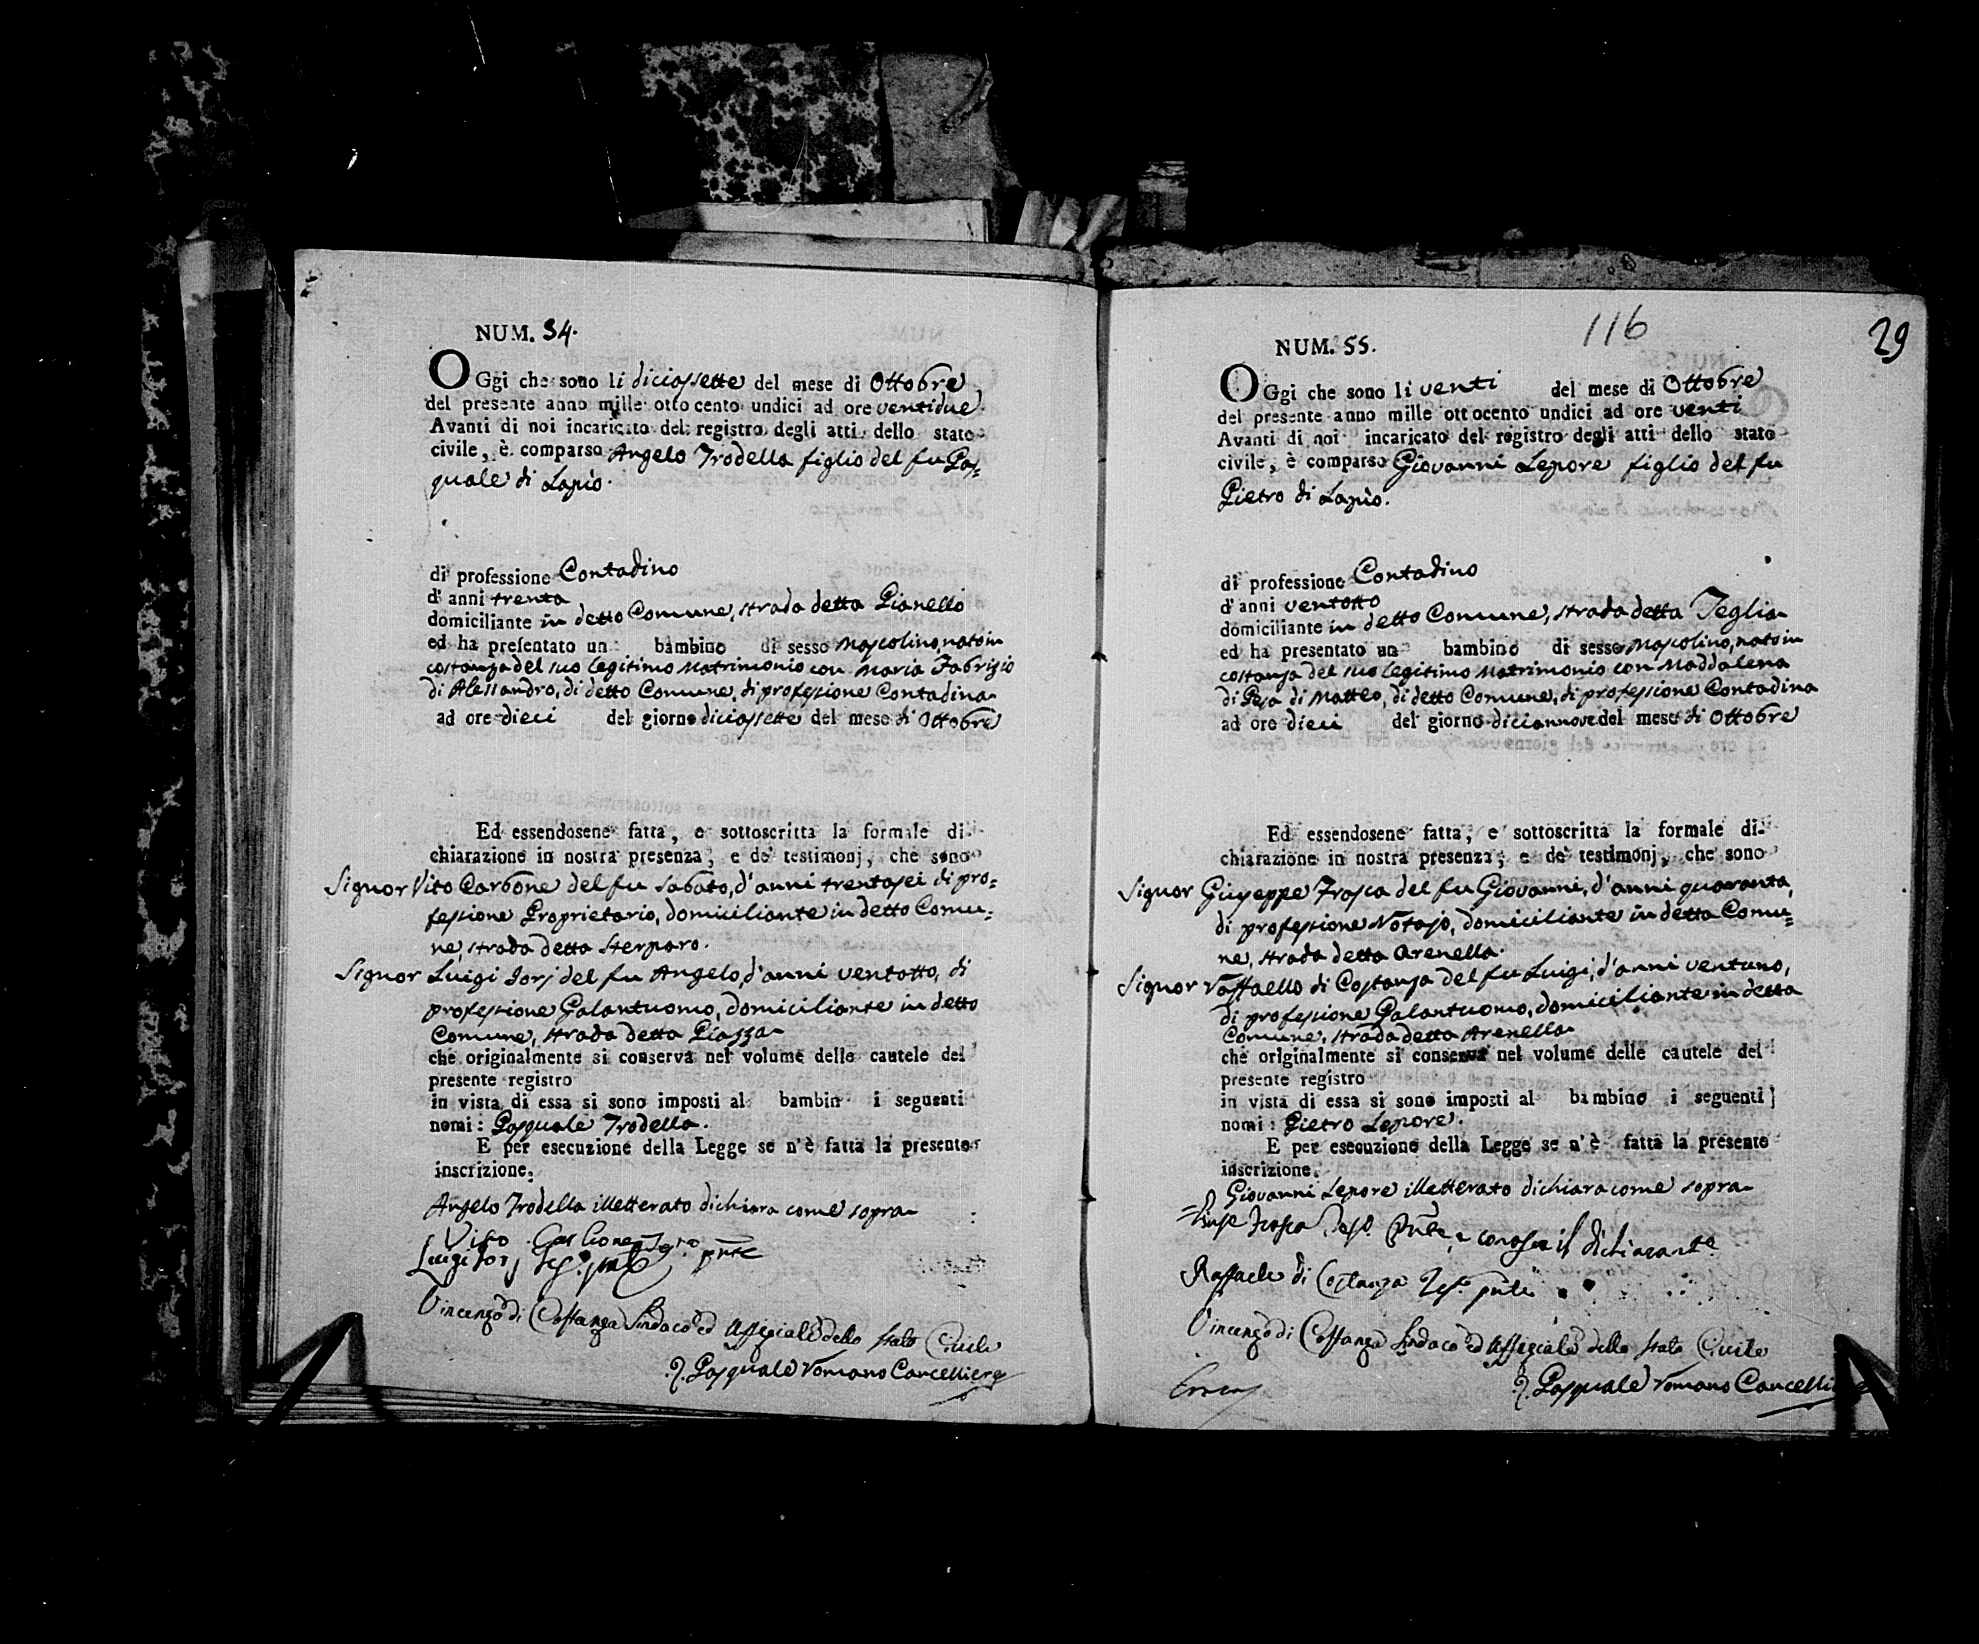 NUM. 54.
OGgi che sono li diciassette del mese di Ottobre
del presente anno mille otto cento undici ad ore ventidue.
Avanti di noi incaricato del registro degli atti dello stato
civile, è comparso Angelo Trodella figlio del fu Pas=
quale di Lapio.
di professione Contadino
d' anni trenta
domiciliante in detto Comune, strada detta Pianello
ed ha presentato un bambino di sesso Mascolino, nato in
costanza del suo legitimo Matrimonio con Maria Fabrizio
di Alessandro, di detto Comune, di professione Contadina
ad ore dieci del giorno diciassette del mese di Ottobre
Ed essendosene fatta, e sottoscritta la formale di-
chiarazione in nostra presenza, e de' testimonj, che sono
Signor Vito Carbone del fu Sabato, d'anni trentasei di pro=
fessione Proprietario, domiciliante in detto Comu=
ne, strada detta Sterparo.
Signor Luigi Iorj del fu Angelo, d'anni ventotto, di
professione Galantuomo, domiciliante in detto
Comune, strada detta Piazza
che originalmente si conserva nel volume delle cautele del
presente registro
in vista di essa si sono imposti al bambin i seguenti
nomi : Pasquale Trodella.
E per esecuzione della Legge se n'è fatta la presente
inscrizione.
Angelo Trodella illetterato dichiara come sopra
Vito Carbone
Luigi Iorj
Vincenzo di Costanza Sindaco ed Uffiziale dello stato Civile
Pasquale Romano Cancelliere
116
29
NUM. 55.
OGgi che sono li venti del mese di Ottobre
del presente anno mille ottocento undici ad ore venti
Avanti di noi incaricato del registro degli atti dello stato
civile, è comparso Giovanni Lepore figlio del fu
Pietro di Lapio.
di professione Contadino
d' anni ventotto
domiciliante in detto Comune, strada detta Teglia
ed ha presentato un bambino di sesso Mascolino, nato in
costanza del suo legitimo Matrimonio con Maddalena
di Pesa di Matteo, di detto Comune, di professione Contadina
ad ore dieci del giorno diciannove del mese di Ottobre
Ed essendosene fatta, e sottoscritta la formale di-
chiarazione in nostra presenza, e de' testimonj, che sono
Signor Giuseppe Frosca del fu Giovanni, d'anni quaranta,
di professione Notajo, domiciliante in detta Comu=
ne, strada detta Arenella.
Signor Raffaello di Costanza del fu Luigi, d'anni ventuno,
di professione Galantuomo, domiciliante in detta
Comune, strada detta Arenella
che originalmente si conserva nel volume delle cautele del
presente registro
in vista di essa si sono imposti al bambino i seguenti
nomi : Pietro Lepore.
E per esecuzione della Legge se n'è fatta la presente
inscrizione.
Giovanni Lepore illetterato dichiara come sopra
conosce il dichiarante
Raffaele di Costanza
Vincenzo di Costanza Sindaco ed Uffiziale dello stato Civile
Pasquale Romano